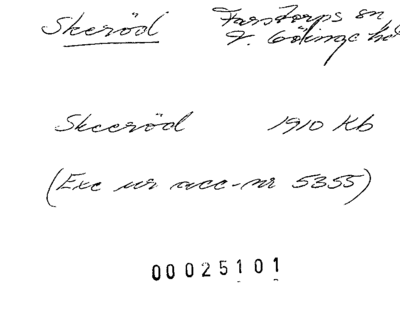 Skeröd Farstorps sn
V. Göinge hd
Skeeröd 1910 Kb
(Exc ur acc-nr 5355)
00025101